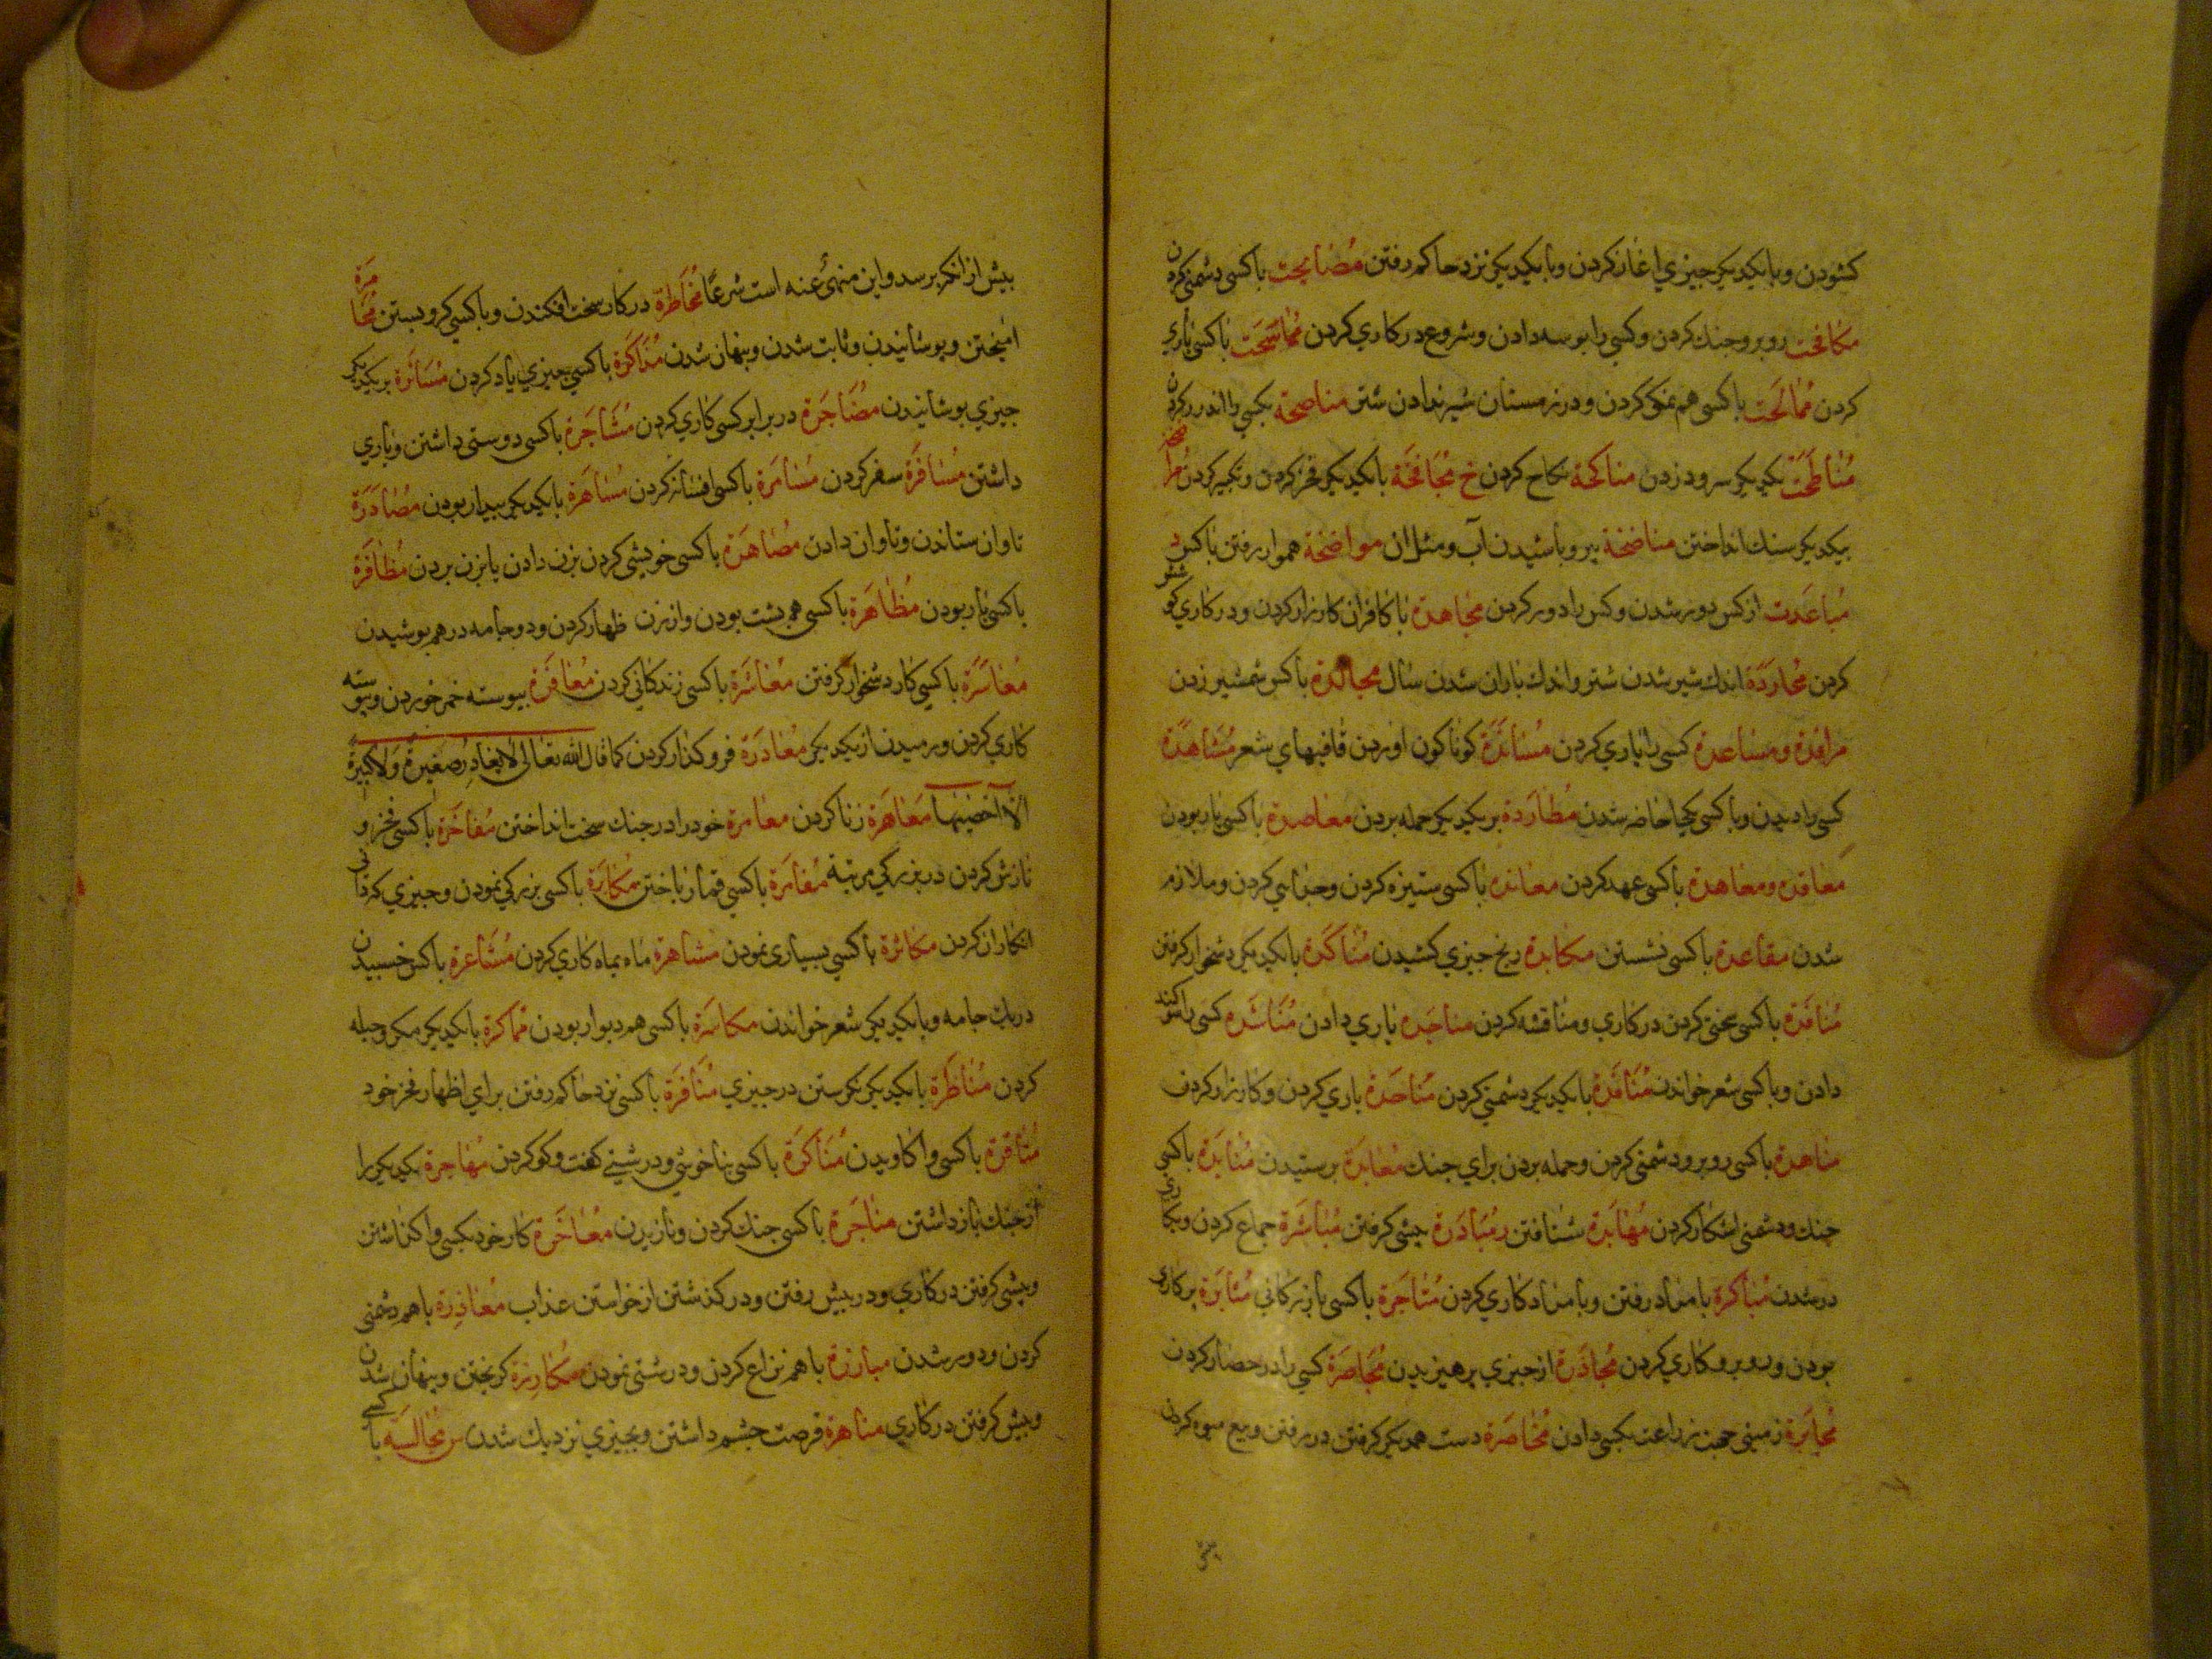 کشودن و با یکدیکر چیزی اغاز کردن و با یکدیکر نزد حاکم رفتن مصابحت با کسی دشمنی کردن
مکافحت روبرو جنک کردن و کسی را بوسه دادن و شروع در کاری کردن مماسحت با کسی بازی
کردن ممالحت با کسی هم نمک کردن و در زمستان شیر دادن شتر مناصحة بکسی را اندرز کردن
مناطحت یکدیکر سرو زدن مناکحة نکاح کردن خ مجافخة با یکدیکر فخر کردن و تکبر کردن مراضخة
بیکدیکر سنک انداختن مناضخة بیرو پاشیدن آب و مثل ان مواضخة هموار رفتن با کس د
مباعدت از کس دور شدن و کس را دور کردن مجاهدة با کافران کارزار کردن و در کاری کوشش
کردن محاردة اندک شیر شدن شتر و اندک باران شدن سال مجالدة با کس شمشیر زدن
مرافدة و مساعدة کسی را یاری کردن مساندة کوناکون اوردن قافیهای شعر مشاهدة
کسی را دیدن و با کسی یکجا حاضر شدن مطاردة بر یکدیکر حمله بردن معاضدة با کسی یار بودن
معاقدة و معاهدة با کسی عهد کردن معاندة با کسی ستیزه کردن و جدایی کردن و ملازم
شدن مقاعدة با کسی نشستن مکابدة رنج چیزی کشیدن مناکدة با یکدیکر دشخوار کرفتن
منافدة با کسی کردن در کاری و مناقشه کردن مناجدة یاری دادن مناشدة کسی را سوکند
دادن و با کسی شعر خواندن مناقدة با یکدیکر دشمنی کردن یاری کردن و کارزار کردن
مناهدة با کسی روبرو دشمنی کردن و حمله بردن برای جنک معابدة پرستیدن منابذة با کسی
جنک و دشمنی اشکار کردن مهابذة شتافتن ر مبادرة پیشی کرفتن مباشرة جماع کردن و بکاری
در شدن مباکرة بامداد رفتن و بامداد کاری کردن متاجرة با کسی بازرکانی مثابرة بر کاری
بودن و روبرو کاری کردن محاذرة از چیزی پرهیزیدن محاصرة کسی را در حصار کردن
مخابرة زمینی جهت زراعت بکسی دادن مخاصرة دست همدیکر کرفتن در رفتن و بیع میوه کردن
پیش از انکه برسد و این منهی عنه است شرعا مخاطرة در کار سخت افکندن و با کسی کرو بستن مخامرة
امیختن و پوشانیدن و ثابت شدن و پنهان شدن مذاکرة با کسی چیزی یاد کردن مساترة بر یکدیکر
چیزی پوشانیدن مضاجرة در برابر کسی کاری کردن مشاجرة با کسی دوستی داشتن و یاری
داشتن مسافرة سفر کردن مسامرة با کسی افسانه کردن مساهرة با یکدیکر بیدار بودن مصادرة
تاوان ستاندن و تاوان دادن مصاهرة با کسی خویشی کردن بزن دادن یا بزن بردن مظافرة
با کسی یار بودن مظاهرة با کسی هم پشت بودن و از زن ظهار کردن و دو جامه در هم پوشیدن
معاسرة با کسی کار دشخوار کرفتن معاشرة با کسی زندکانی کردن معاقرة پیوسته خمر خوردن و پیوسته
کاری کردن و رمیدن از یکدیکر مغادرة فرو کذار کردن کما قال الله تعالی لا یغادر صغیرة و لا کبیرة
الا احصیها معاهرة زنا کردن مغامرة خود را در جنک سخت انداختن مفاخرة با کسی فخر و
نازش کردن در بزرکی مرتبه مقامرة با کسی قمار باختن مکابرة با کسی بزرکی نمودن و چیزی که دانی
انکار ان کردن مکاثرة با کسی بسیاری نمودن مشاهرة ماه بماه کاری کردن مشاعرة با کس خسبیدن
در یک جامه و با یکدیکر شعر خواندن مکاسرة با کسی هم دیوار بودن مماکرة با یکدیکر مکر و حیله
کردن مناظرة با یکدیکر نکرستن در چیزی منافرة با کسی نزد حاکم رفتن برای اظهار فخر خود
مناقرة با کسی وا کاویدن مناکرة با کسی بناخوشی و درشتی کفت و کو کردن مهاجرة یکدیکر را
از جنک باز داشتن مناجرة با کسی جنک کردن و نازیدن معاخرة کار خود بکسی وا کذاشتن
و پیشی کرفتن در کاری و در پیش رفتن و در کذشتن از خواستن عذاب معاذرة با هم دشمنی
کردن و دور شدن مبارزة با هم نزاع کردن و درشتی نمودن مکارزة کریختن و پنهان شدن
و پیش کرفتن در کاری مناهزة فرصت چشم داشتن و بچیزی نزدیک شدن س مجالسة با کسی